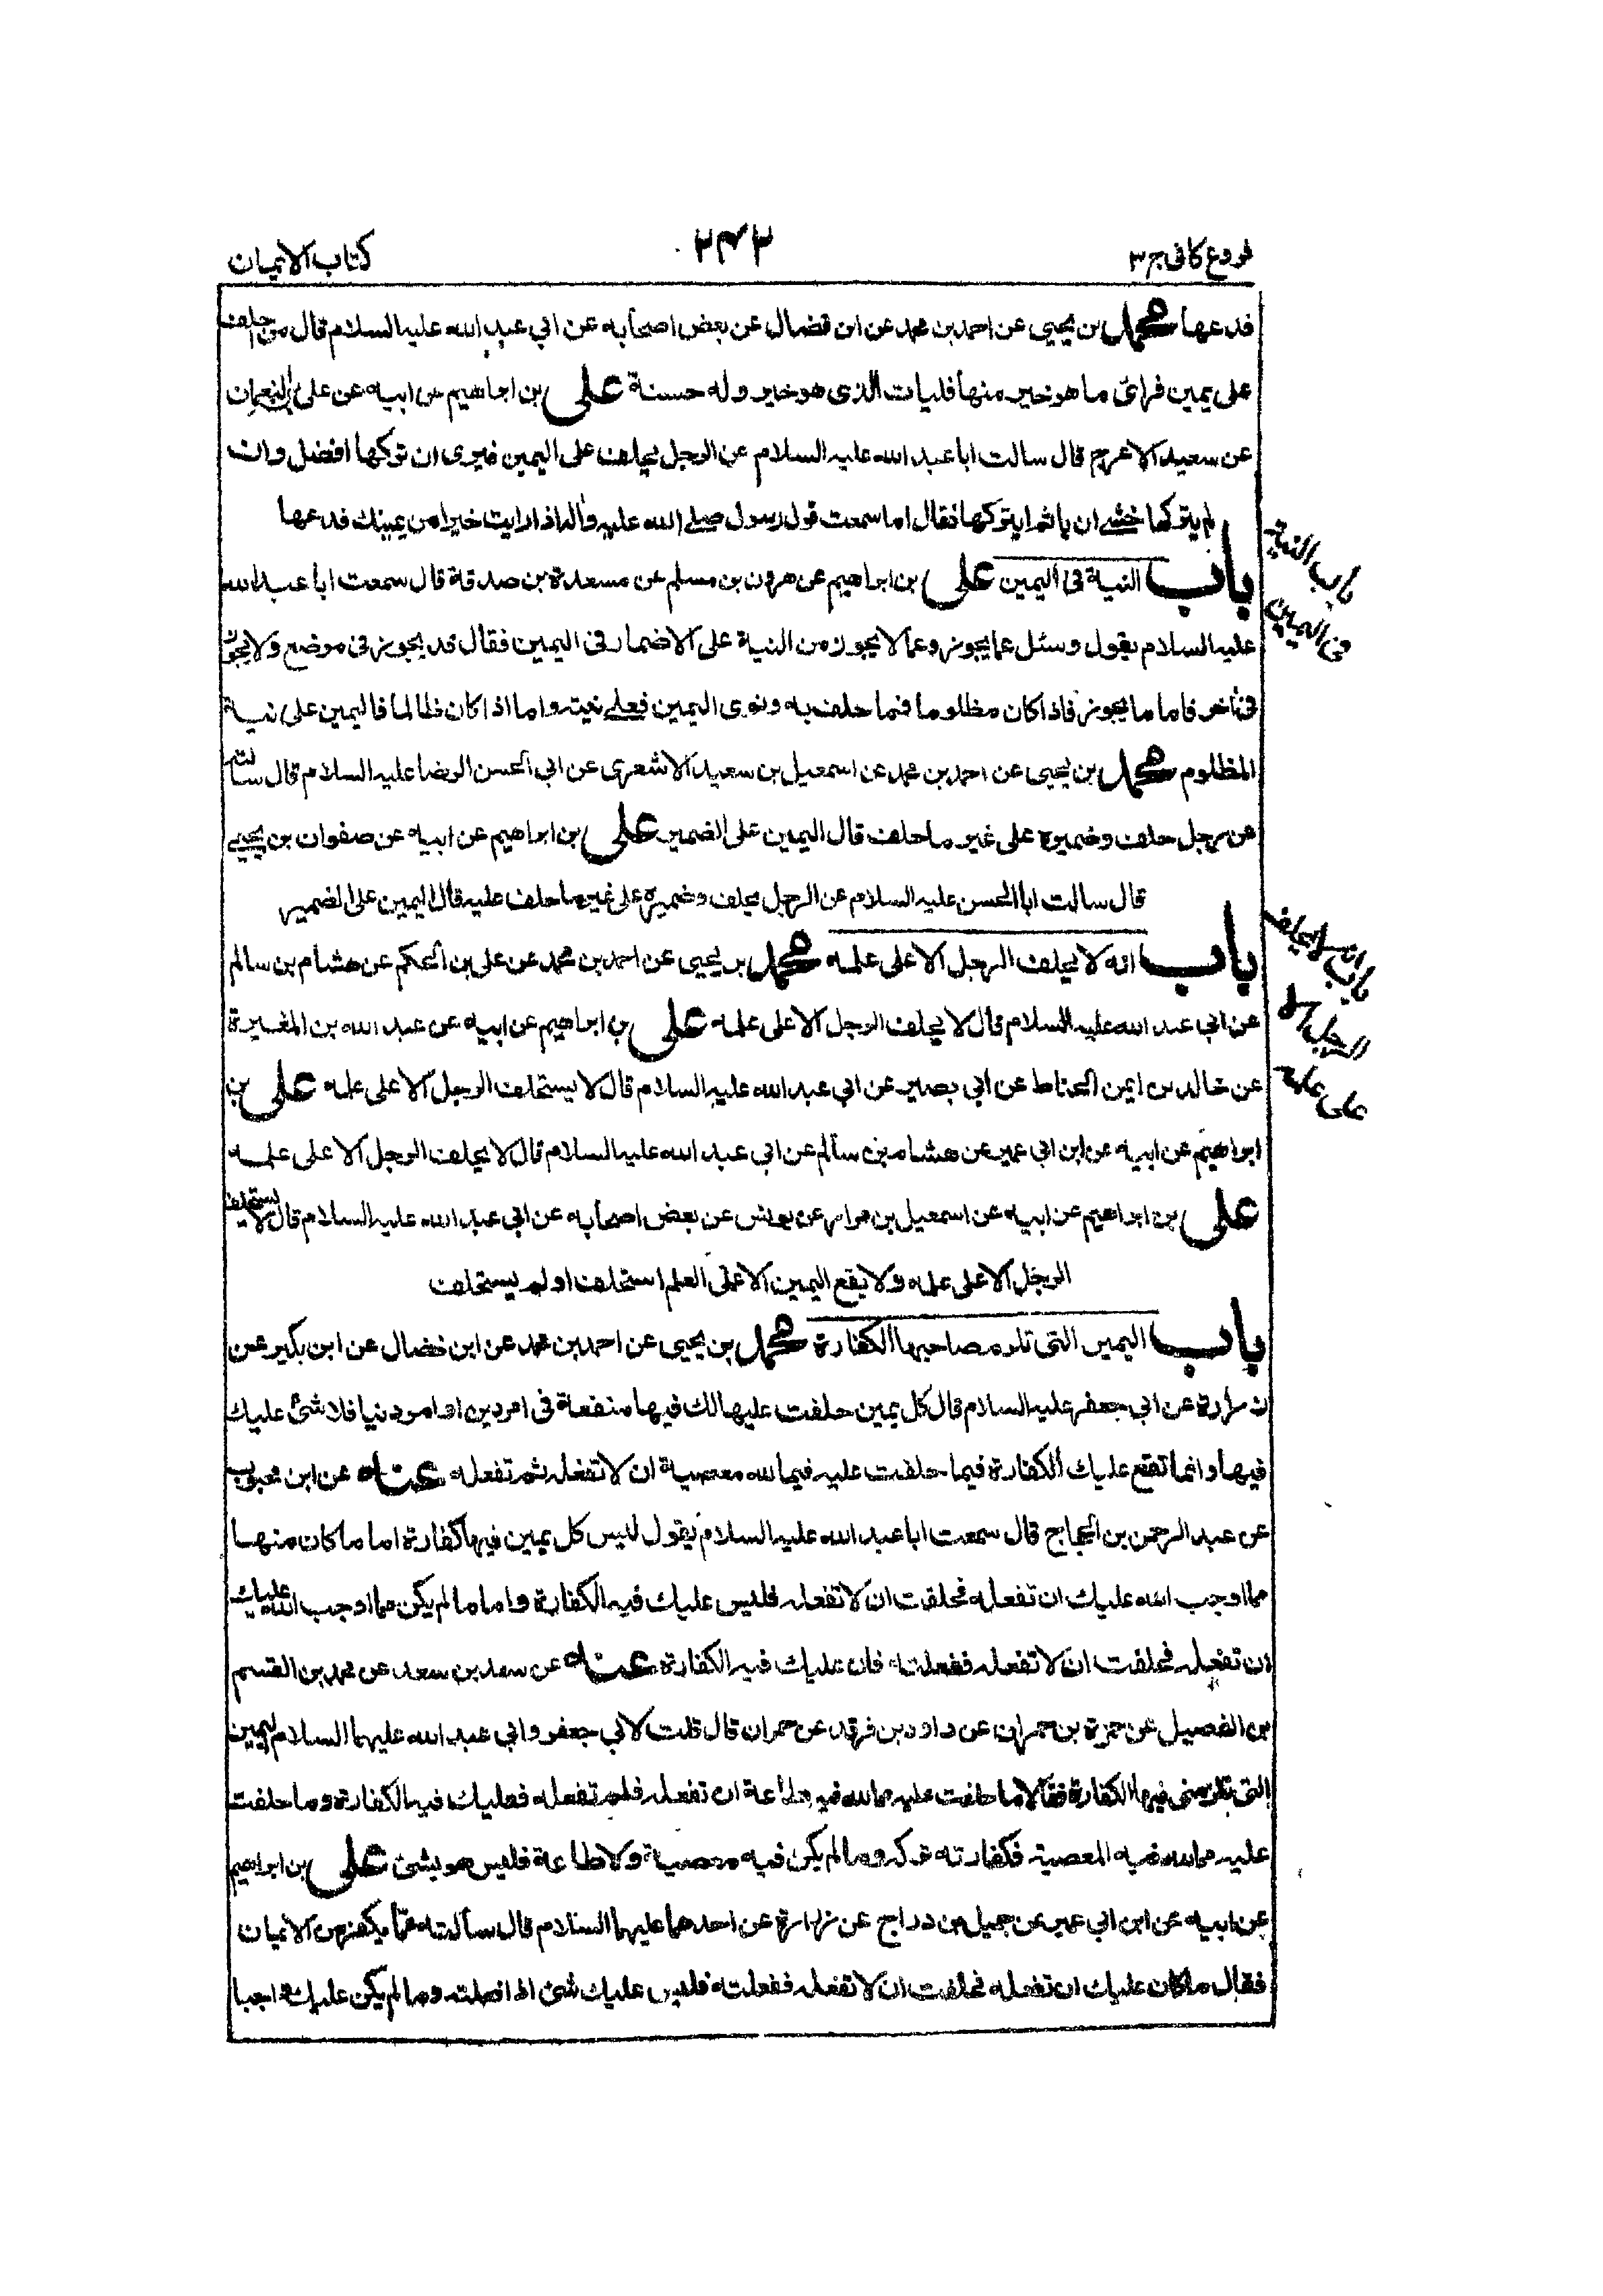 فروع كافى ج ٣
٢٤٢
كتاب الايمان
فدعها محمد بن يحيى عن احمد بن محمد عن ابن فضال عن بعض اصحابه عن ابي عبد الله عليه السلام قال من حلف
على يمين فراى ما هو خير منها فليات الذى هو خير وله حسنة على بن ابراهيم عن ابيه عن على بن النعمان
عن سعيد الاعرج قال سالت ابا عبد الله عليه السلام عن الرجل يحلف على اليمين فيرى ان تركها افضل وان
لم يتركها خشى ان ياثم ايتركها فقال اما سمعت قول رسول الله صلى الله عليه واله اذا رايت خيرا من يمينك فدعها
باب النية فى اليمين على بن ابراهيم عن هرون بن مسلم عن مسعدة بن صدقة قال سمعت ابا عبد الله
عليه السلام يقول وسئل عما يجوز وعما لا يجوز من النية على الاضمار فى اليمين فقال قد يجوز فى موضع ولا يجوز
فى أخر فاما ما يجوز فاذا كان مظلوما فما حلف به ونوى اليمين فعلى نيته واما اذا كان ظالما فاليمين على نية
المظلوم محمد بن يحيى عن احمد بن محمد عن اسمعيل بن سعيد الاشعرى عن ابي الحسن الرضا عليه السلام قال سالته
عن رجل حلف وضميره على غير ما حلف قال اليمين على الضمير على بن ابراهيم عن ابيه عن صفوان بن يحيى
قال سالت ابا الحسن عليه السلام عن الرجل يحلف وضميره على غير ما حلف عليه قال اليمين على الضمير
باب انه لا يحلف الرجل الا على علمه محمد بن يحيى عن احمد بن محمد عن على بن الحكم عن هشام بن سالم
عن ابي عبد الله عليه السلام قال لا يحلف الرجل الا على علمه على بن ابراهيم عن ابيه عن عبد الله بن المغيرة
عن خالد بن ايمن الحناط عن ابي بصير عن ابي عبد الله عليه السلام قال لا يستحلف الرجل الا على علمه على بن
ابراهيم عن ابيه عن ابن ابي عمير عن هشام بن سالم عن ابي عبد الله عليه السلام قال لا يحلف الرجل الا على علمه
على بن ابراهيم عن ابيه عن اسمعيل بن مرار عن يونس عن بعض اصحابه عن ابي عبد الله عليه السلام قال لا يستحلف
الرجل الا على علمه ولا يقع اليمين الا على العلم استحلف او لم يستحلف
باب اليمين التى تلزم صاحبها الكفارة محمد بن يحيى عن احمد بن محمد عن ابن فضال عن ابن بكير عن
زرارة عن ابي جعفر عليه السلام قال كل يمين حلفت عليها لك فيها منفعة فى امر دين او امر دنيا فلا شئ عليك
فيها وانما تقع عليك الكفارة فيما حلفت عليه فيما لله معصية ان لا تفعله ثم تفعله عنه عن ابن محبوب
عن عبد الرحمن بن الحجاج قال سمعت ابا عبد الله عليه السلام يقول ليس كل يمين فيها كفارة اما ما كان منها
مما اوجب الله عليك ان تفعله فحلفت ان لا تفعله فليس عليك فيه الكفارة واما ما لم يكن مما اوجب الله عليك
ان تفعله فحلفت ان لا تفعله ففعلته فان عليك فيه الكفارة عنه عن سعد بن سعد عن محمد بن القسم
بن الفضيل عن حمزة بن حمران عن داود بن فرقد عن حمران قال قلت لابي جعفر وابي عبد الله عليهما السلام اليمين
التى تلزمنى فيها الكفارة فقالا ما حلفت عليه مما لله فيه طاعة ان تفعله فلم تفعله فعليك فيه الكفارة وما حلفت
عليه مما لله فيه المعصية فكفارته تركه وما لم يكن فيه معصية ولا طاعة فليس هو بشئ على بن ابراهيم
عن ابيه عن ابن ابي عمير عن جميل بن دراج عن زرارة عن احدهما عليهما السلام قال سألته عما يكفر من الايمان
فقال ما كان عليك ان تفعله فحلفت ان لا تفعله ففعلته فليس عليك شئ اذا فعلته وما لم يكن عليك واجبا
باب النية
فى اليمين
باب انه لا يحلف
الرجل الا
على علمه